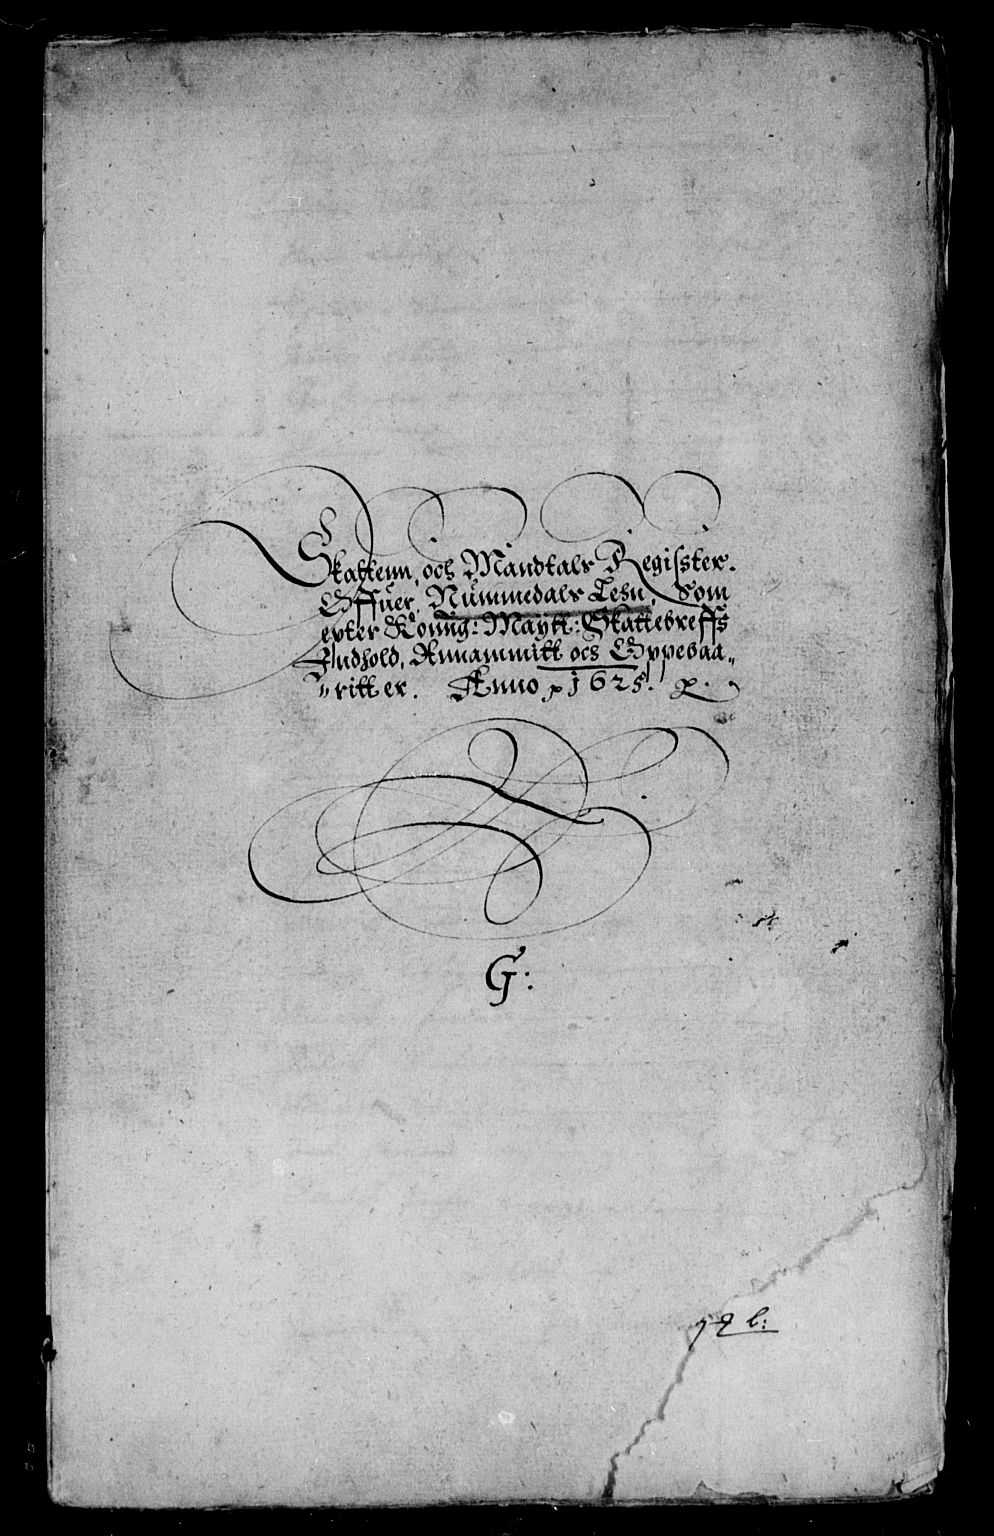 Skattenn, och Mandtals Regisster.
Offuer, Nummedals Lehn, Som
epter Konng: Maÿtt: Skattebreffs
Indhold, Annammitt och Oppebaa„
„ritt er. Anno 1625.
G: